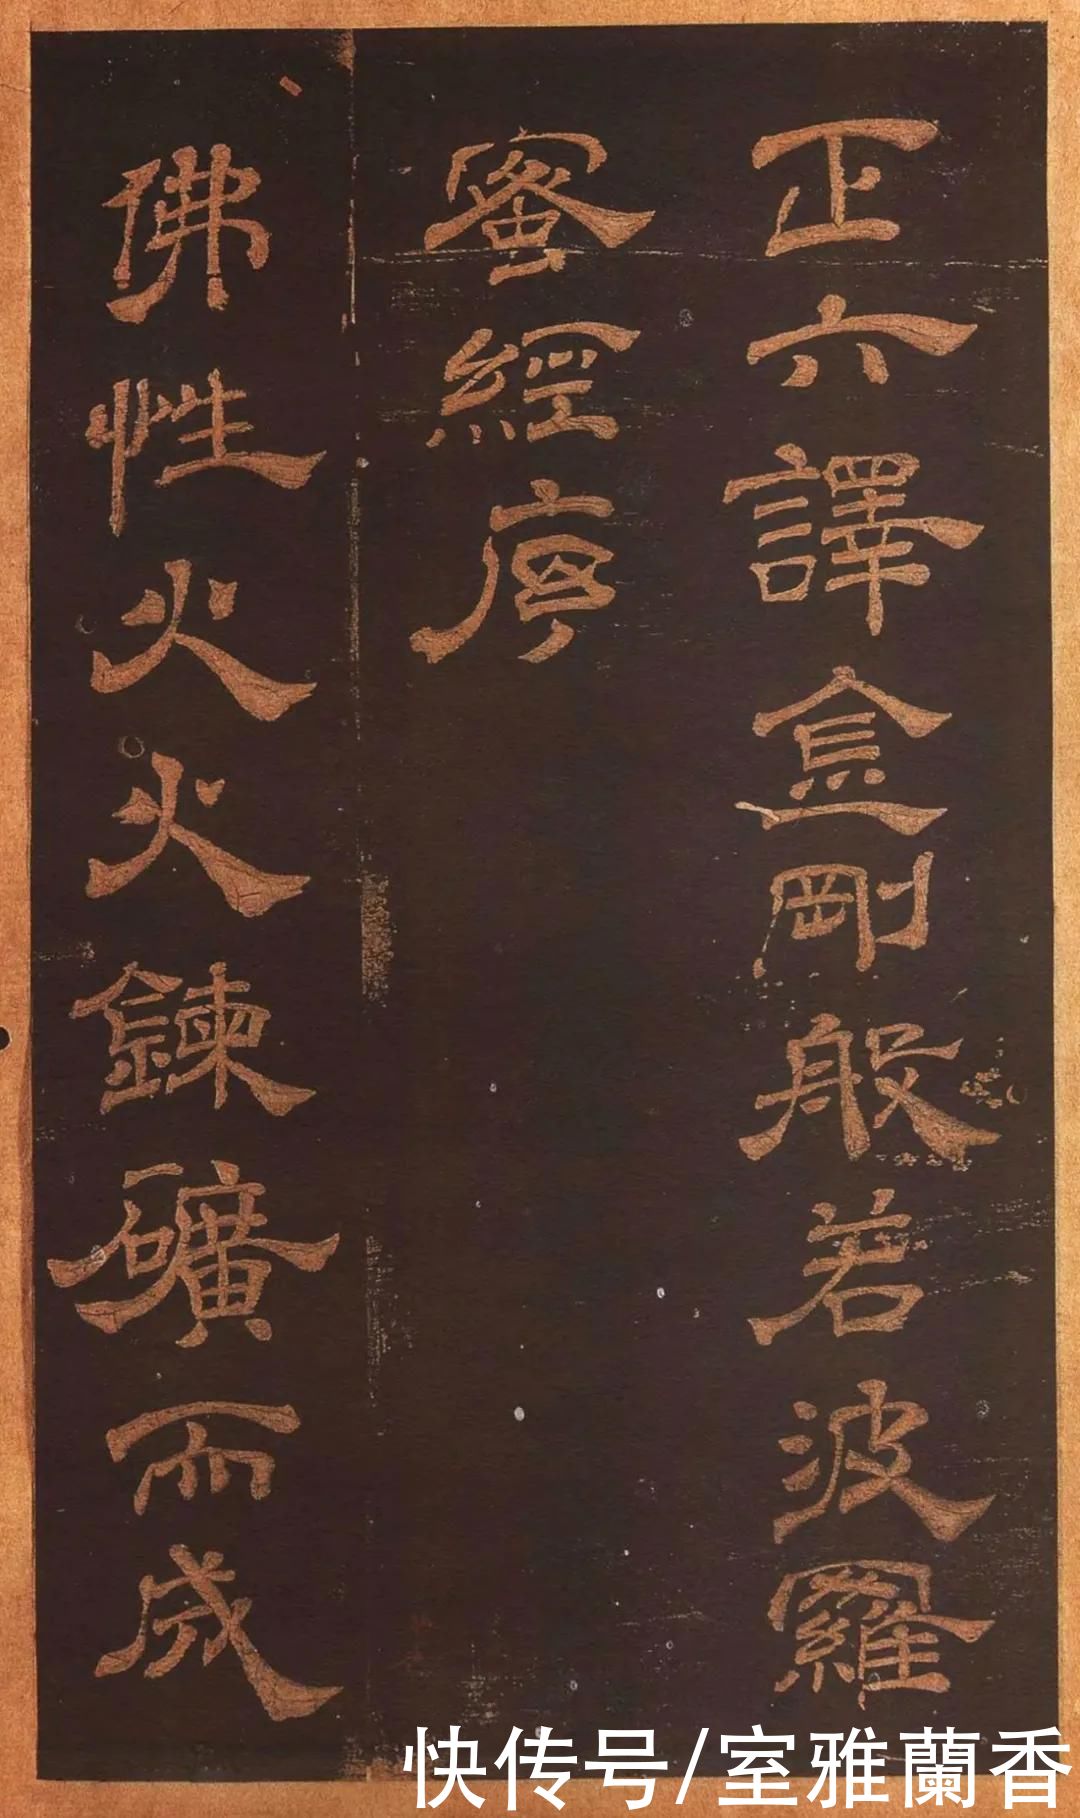 正六譯金剛般若波羅
蜜經序
佛性火火鍊礦而成
快传号/室雅蘭香